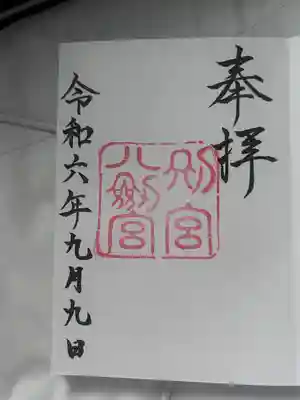 奉拝
別宮
八剣宮
令和六年九月九日